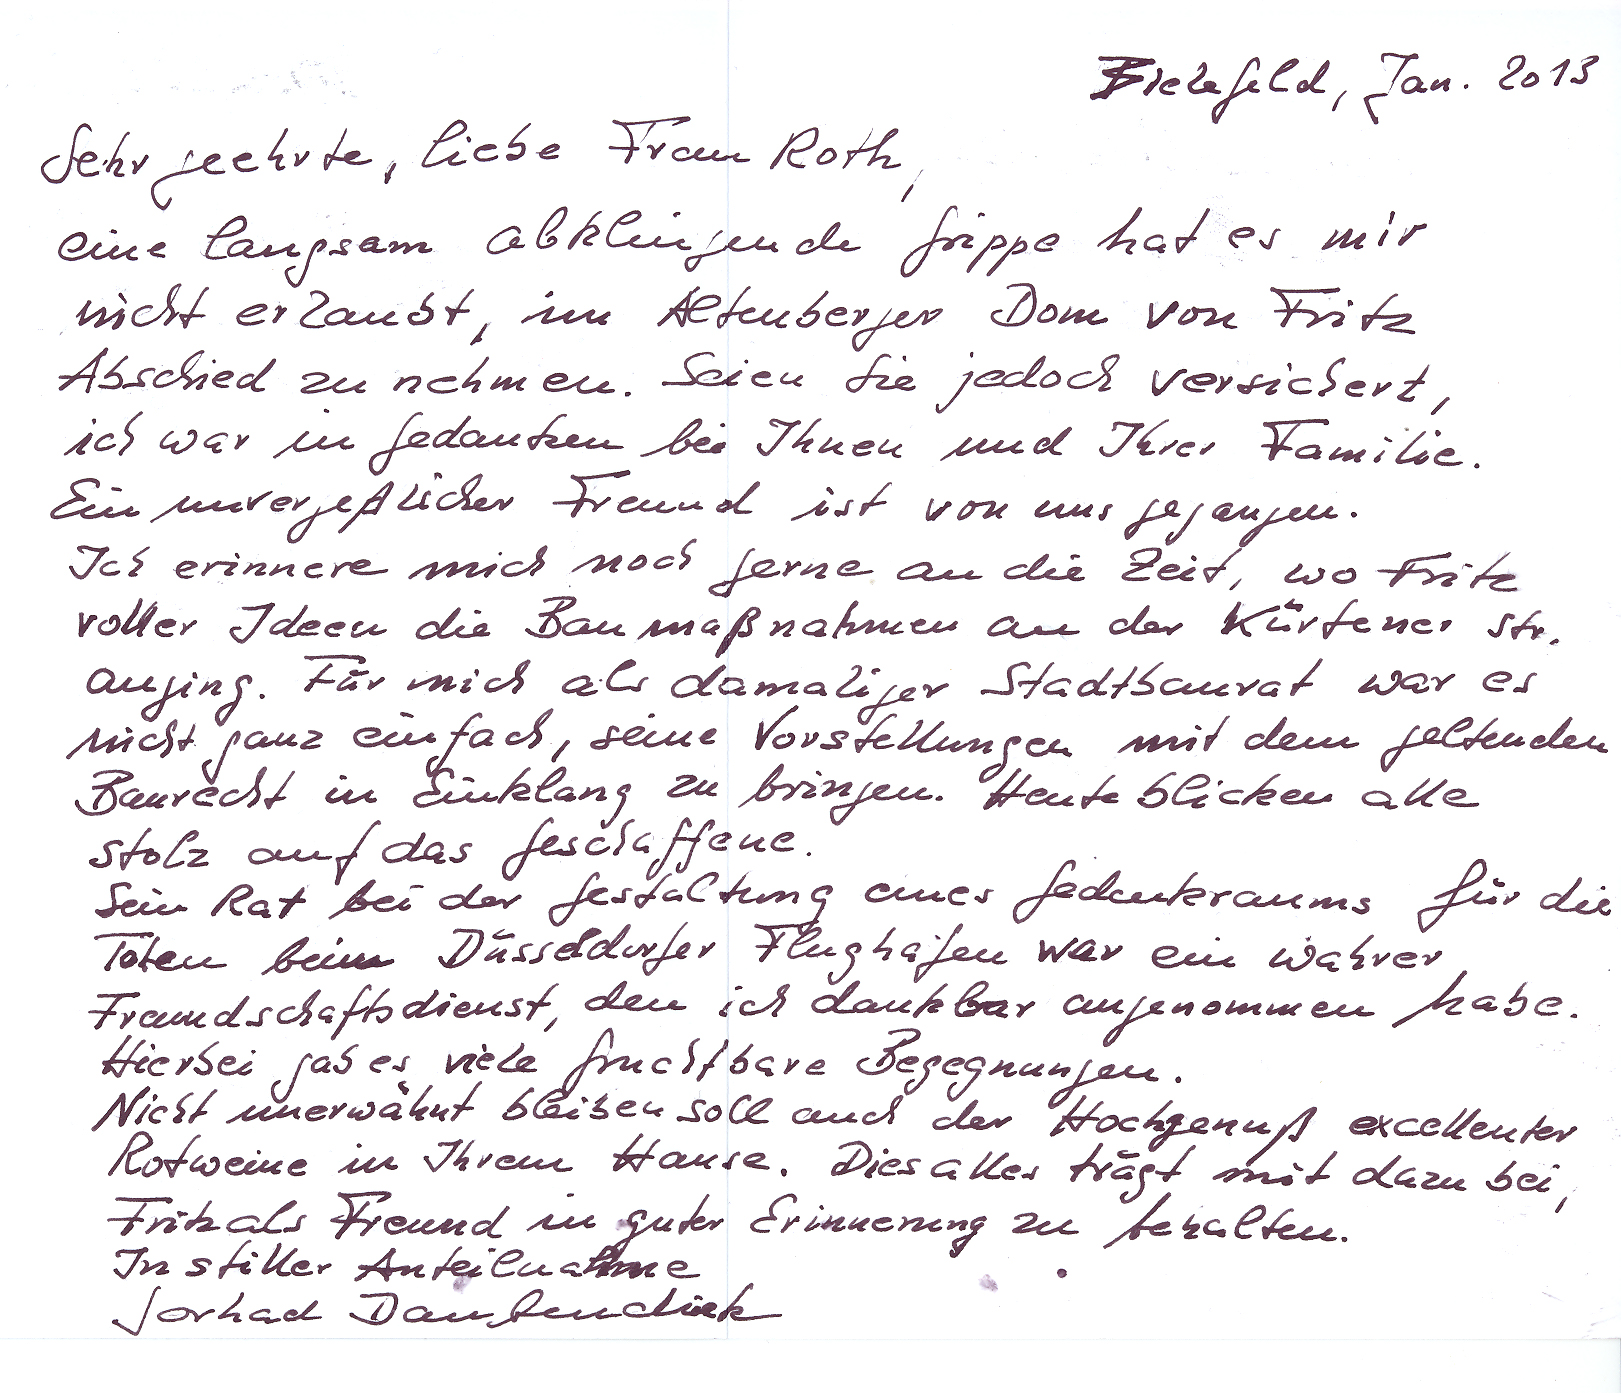 Bielefeld, Jan. 2013
Sehr geehrte, liebe Frau Roth,
eine langsam abklingende Grippe hat es mir
nicht erlaubt, im Altenberger Dom von Fritz
Abschied zu nehmen. Seien Sie jedoch versichert,
ich war in Gedanken bei Ihnen und Ihrer Familie.
Ein unvergeßlicher Freund ist von uns gegangen.
Ich erinnere mich noch gerne an die Zeit, wo Fritz
voller Ideen die Baumaßnahmen an der Kürtener Str.
anging. Für mich als damaliger Stadtbaurat war es
nicht ganz einfach, seine Vorstellungen mit dem geltenden
Baurecht in Einklang zu bringen. Heute blicken alle
stolz auf das Geschaffene.
Sein Rat bei der Gestaltung eines Gedenkraums für die
Toten beim Düsseldorfer Flughafen war ein wahrer
Freundschaftsdienst, den ich dankbar angenommen habe.
Hierbei gab es viele fruchtbare Begegnungen.
Nicht unerwähnt bleiben soll auch der Hochgenuß excellenter
Rotweine in Ihrem Hause. Dies alles trägt mit dazu bei,
Fritz als Freund in guter Erinnerung zu behalten.
In stiller Anteilnahme